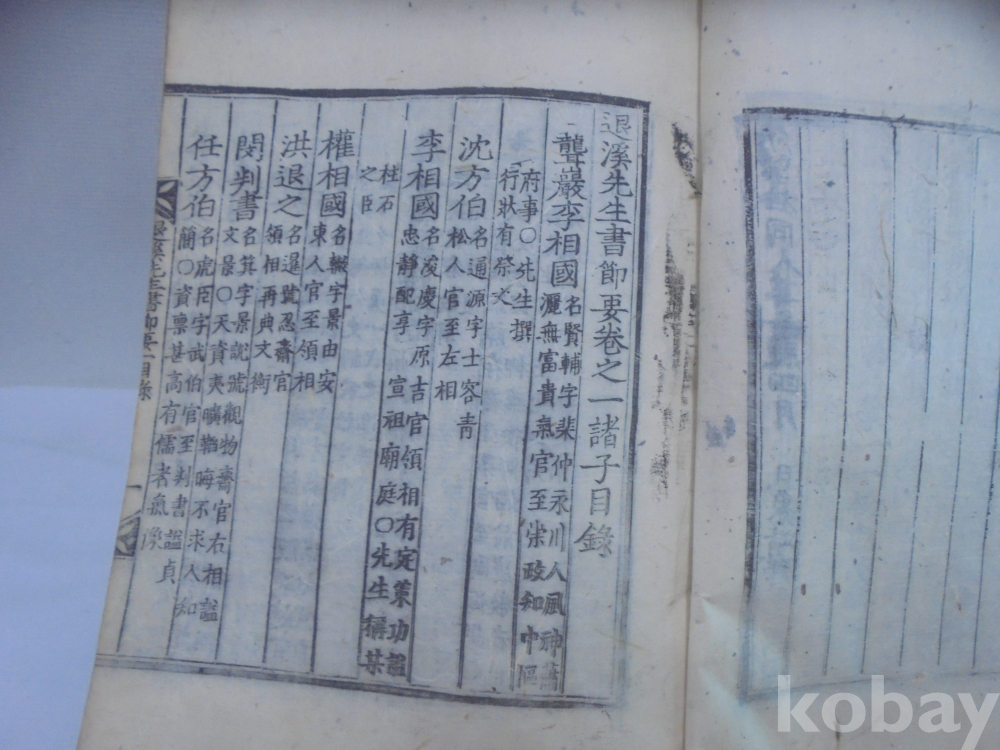 退溪先生書節要卷之一諸子目錄
聾巖李相國 名賢輔字棐仲永川人風神蕭
灑無富貴氣官至崇政知中樞
府事○先生撰
行狀有祭文
沈方伯 名通源字士容靑
松人官至左相
李相國 名浚慶字原吉官領相有定策功謚
忠靜配享 宣祖廟庭○先生稱某
柱石
之臣
權相國 名轍字景由安
東人官至領相
洪退之 名暹號忍齋官
領相再典文衡
閔判書 名箕字景說號觀物齋官右相謚
文景○天資夷曠韜晦不求人知
任方伯 名虎臣字武伯官至判書謚貞
簡○資稟甚高有儒者氣像
退溪先生書節要 目錄 一
kobay